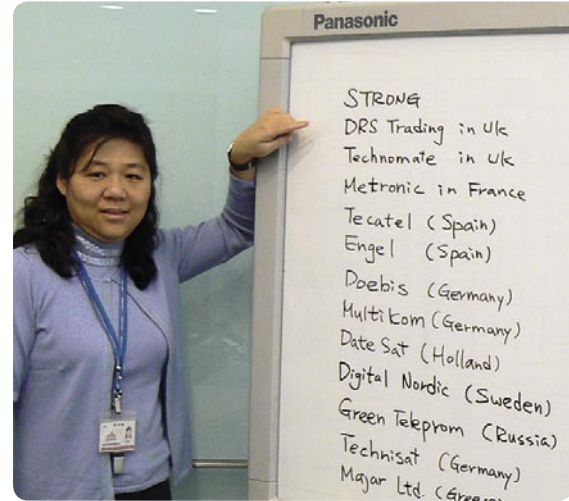 Panasonic
STRONG
DRS Trading in Uk
Technomate in Uk
Metronic in France
Tecatel (Spain)
Engel (Spain)
Doebis (Germany)
Multikom (Germany)
Date Sat (Holland)
Digital Nordic (Sweden)
Green Teleprom (Russia)
Technisat (Germany)
Majar Ltd.